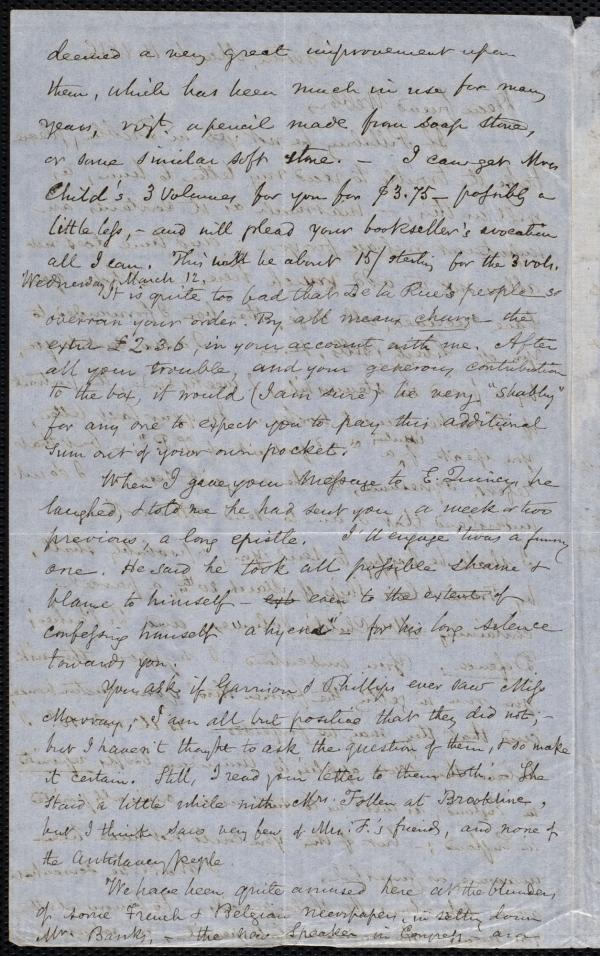 deemed a very great improvement upon
them, which has been much in use for many
years, vizt. a pencil made from soap stone,
or some similar soft stone. — I can get Mrs
Child's 3 volumes for you for $3.75 — possibly a
little less, — and will plead your bookseller's avocation
all I can. This will be about 15/ sterling for the 3 vols.
Wednesday, March 12.
It is quite too bad that De la Rue's people so
overran your order. By all means charge the
extra £2.3.6, in your account with me. After
all your trouble, and your generous contribution
to the box, it would (I am sure) be very "shabby"
for any one to expect you to pay this additional
sum out of your own pocket.
When I gave your message to E. Quincy, he
laughed, & told me he had sent you, a week or two
previous, a long epistle. I'll engage 'twas a funny
one. He said he took all possible shame &
blame to himself — even to the extent of
confessing himself "a hyena" — for his long silence
towards you.
You ask if Garrison & Phillips ever saw Miss
Murray; I am all but positive that they did not; —
but I haven't thought to ask the question of them, & so make
it certain. Still, I read your letter to them both. She
staid a little while with Mrs. Follen at Brookline,
but I think saw very few of Mrs. F.'s friends, and none of
the Antislavery people.
We have been quite amused here at the blunders
of some French & Belgian newspapers, in setting down
Mr. Banks, — the new Speaker in Congress — as a